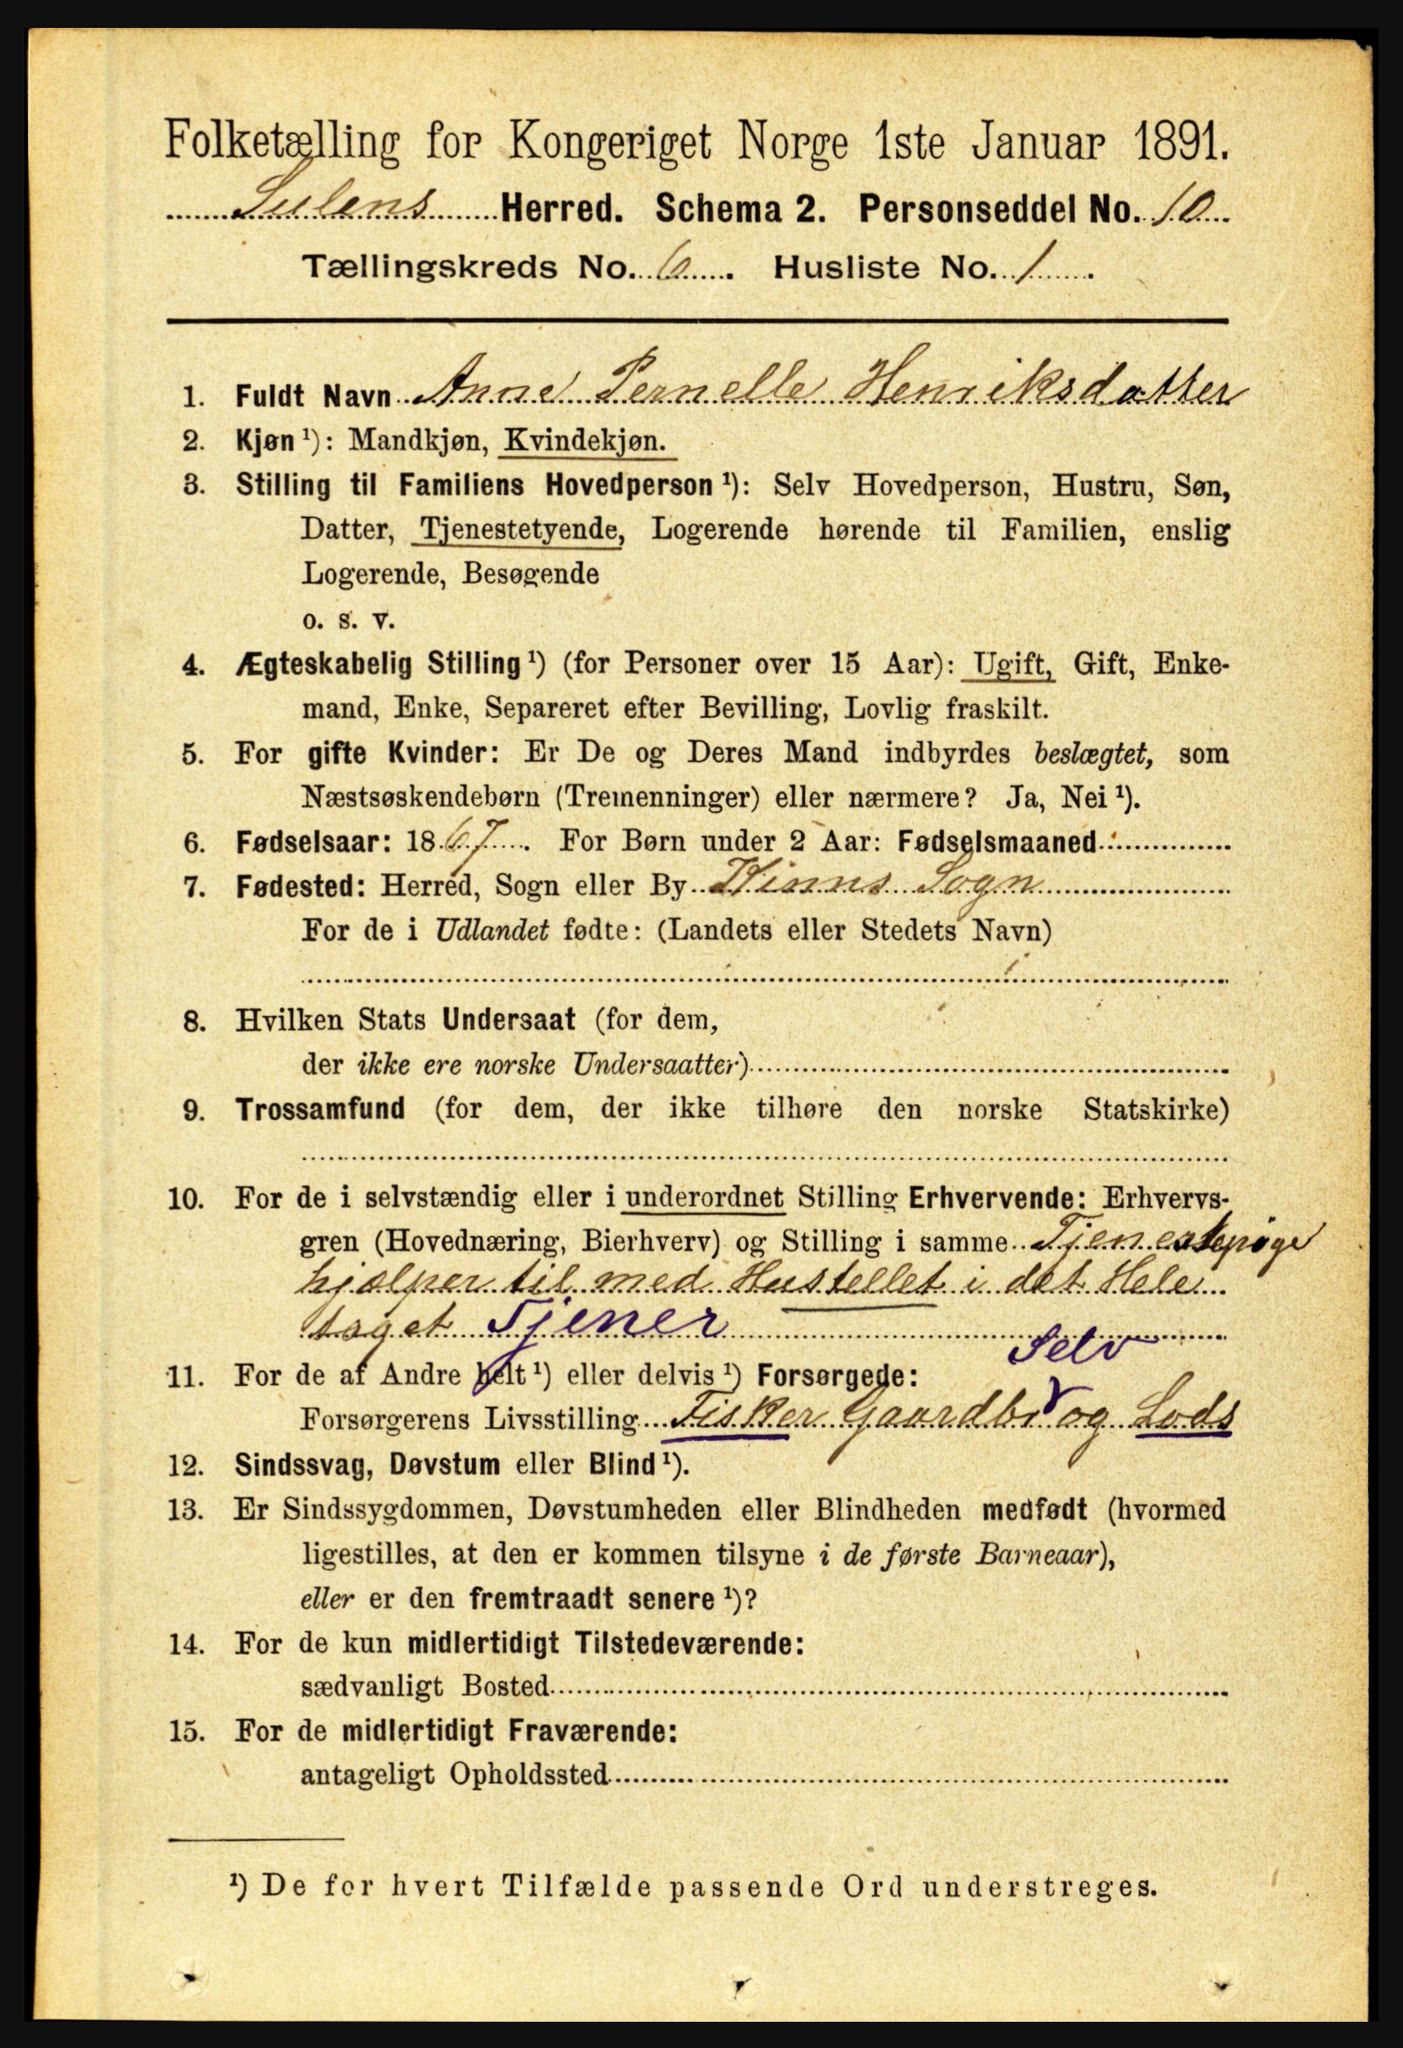 Folketælling for Kongeriget Norge 1ste Januar 1891.
Sulens Herred. Schema 2. Personseddel No. 10
Tællingskreds No. 6. Husliste No. 1.
1. Fuldt Navn Anne Pernelle Henriksdatter
2. Kjøn ¹): Mandkjøn, Kvindekjøn.
3. Stilling til Familiens Hovedperson ¹): Selv Hovedperson, Hustru, Søn,
Datter, Tjenestetyende, Logerende hørende til Familien, enslig
Logerende, Besøgende
o. s. v.
4. Ægteskabelig Stilling ¹) (for Personer over 15 Aar): Ugift, Gift, Enke-
mand, Enke, Separeret efter Bevilling, Lovlig fraskilt.
5. For gifte Kvinder: Er De og Deres Mand indbyrdes beslægtet, som
Næstsøskendebørn (Tremenninger) eller nærmere? Ja, Nei ¹).
6. Fødselsaar: 1867. For Børn under 2 Aar: Fødselsmaaned
7. Fødested: Herred, Sogn eller By Kinns Sogn
For de i Udlandet fødte: (Landets eller Stedets Navn)
8. Hvilken Stats Undersaat (for dem,
der ikke ere norske Undersaatter)
9. Trossamfund (for dem, der ikke tilhøre den norske Statskirke)
10. For de i selvstændig eller i underordnet Stilling Erhvervende: Erhvervs-
gren (Hovednæring, Bierhverv) og Stilling i samme Tjenestepige
hjælper til med Husstellet i det Hele
taget Tjener
Selv
11. For de af Andre helt ¹) eller delvis ¹) Forsørgede:
Forsørgerens Livsstilling Fisker Gaardbr og Lods
12. Sindssvag, Døvstum eller Blind ¹).
13. Er Sindssygdommen, Døvstumheden eller Blindheden medfødt (hvormed
ligestilles, at den er kommen tilsyne i de første Barneaar),
eller er den fremtraadt senere ¹)?
14. For de kun midlertidigt Tilstedeværende:
sædvanligt Bosted
15. For de midlertidigt Fraværende:
antageligt Opholdssted
¹) De for hvert Tilfælde passende Ord understreges.